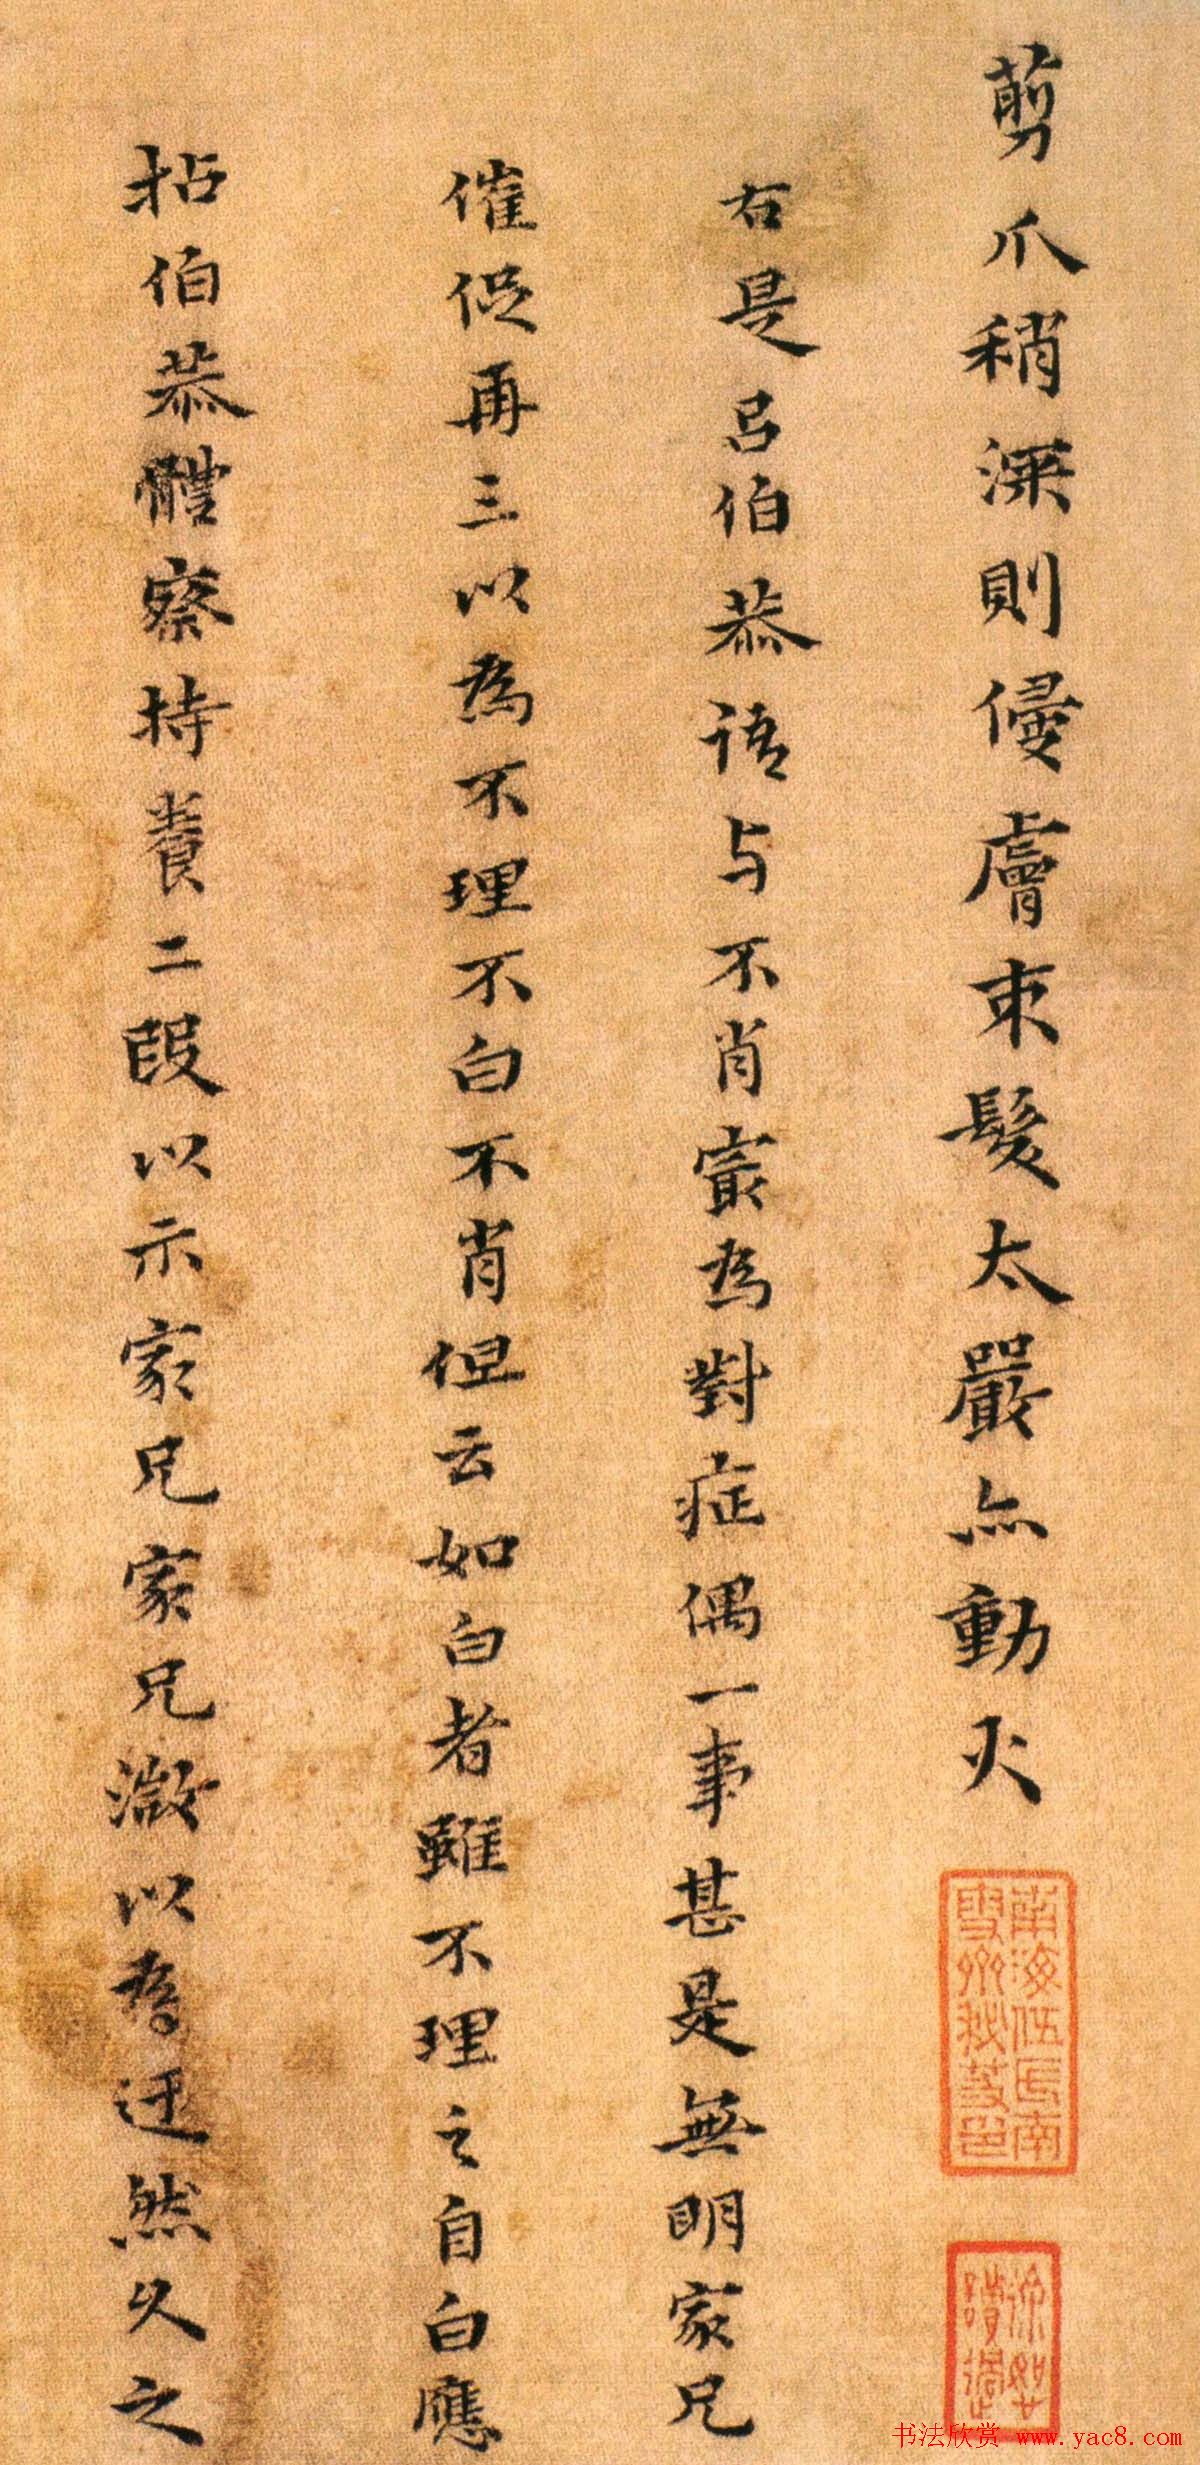 剪爪稍深則侵膚束髮太嚴亦動火
右是呂伯恭語与不肖寂為對症偶一事甚是無明家兄
催促再三以為不理不白不肖但云如白者雖不理之自白應
拈伯恭體察持養二段以示家兄家兄激以為迂然久之
南海伍氏南雪齋秘笈印
书法欣赏 www.yac8.com